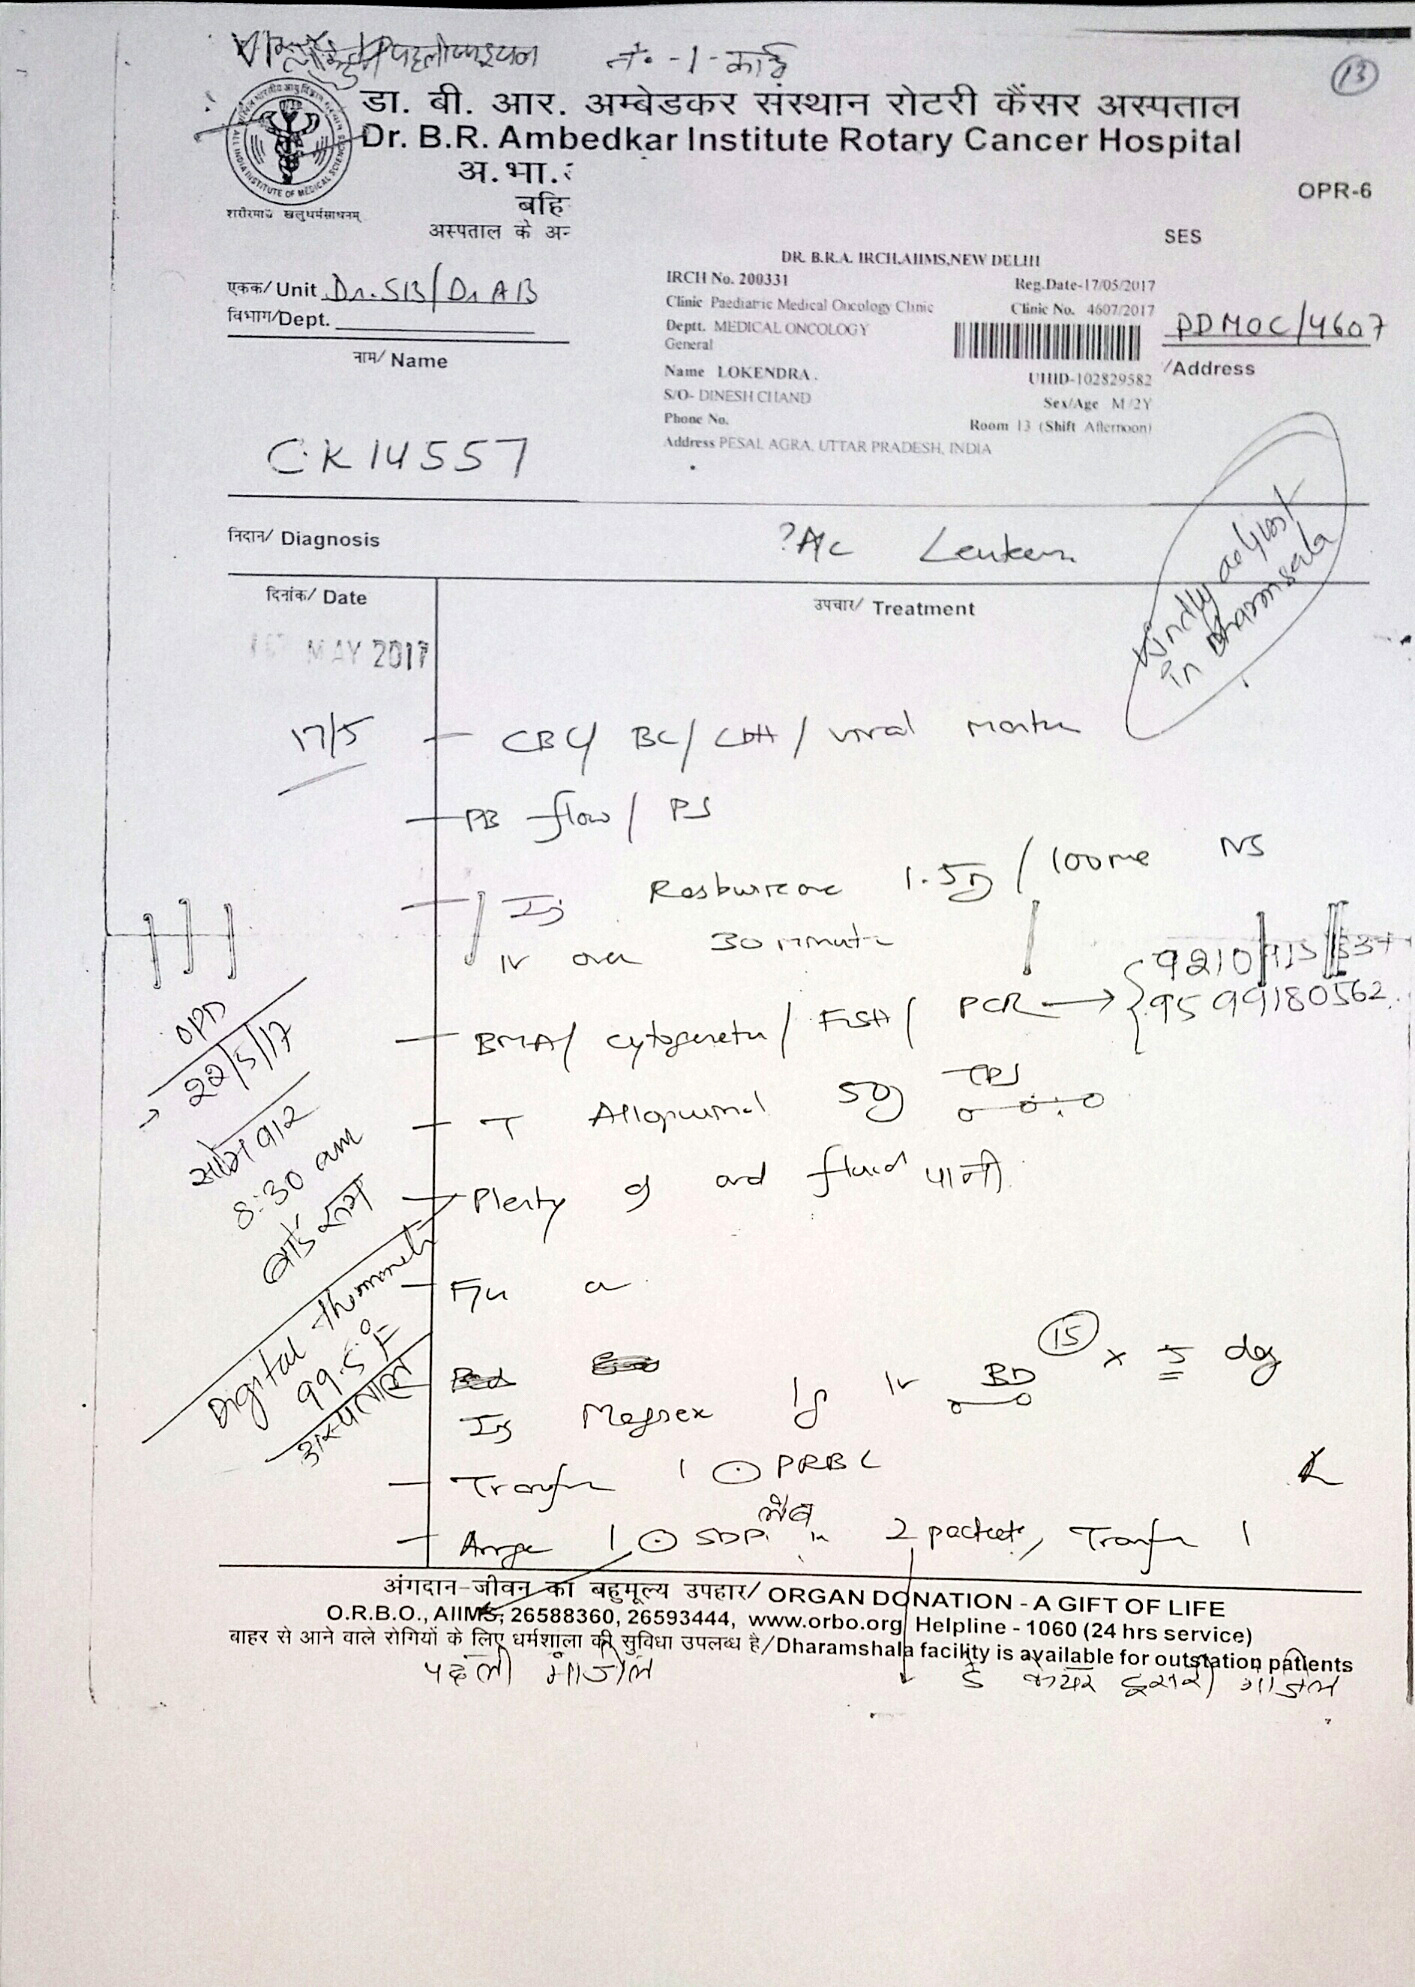 नं. -1- कार्ड
13
डा. बी. आर. अम्बेडकर संस्थान रोटरी कैंसर अस्पताल
Dr. B.R. Ambedkar Institute Rotary Cancer Hospital
अ.भा.
OPR-6
बहि
शरीरमाद्यं खलुधर्मसाधनम्
अस्पताल के अन
SES
DR. B.R.A. IRCH,AIIMS,NEW DELHI
IRCH No. 200331 Reg.Date-17/05/2017
एकक/ Unit Dr. SB/Dr AB
Clinic Paediatric Medical Oncology Clinic Clinic No. 4607/2017
विभाग/Dept.
Deptt. MEDICAL ONCOLOGY
General
PDMOC/4607
नाम/ Name
Name LOKENDRA . UHID-102829582
/Address
S/O- DINESH CHAND Sex/Age M/2Y
Phone No. Room 13 (Shift Afternoon)
Address PESAL AGRA, UTTAR PRADESH, INDIA
CK14557
निदान/ Diagnosis ?A/c Leukem
Kindly adjust
in Dharamsala
दिनांक/ Date उपचार/ Treatment
MAY 2017
17/5 CBC/ BC/ LDH/ viral marker
PB flow / PS
Inj Rasburicase 1.5g / 100ml NS
IV over 30 minute
BMA/ cytogenetic/ FISH/ PCR → 9599180562
OPD
22/5/17
सोमवार
8:30 am
T Allopurinol 50g TDS
Plenty of oral fluid पानी
Digital thermometer
99.5°F
अस्पताल
F/u
15
Inj Magnex 1g IV BD x 5 day
Transfuse 1 PRBC
Arrange 1 SDP in 2 packets, Transfuse 1
अंगदान-जीवन का बहुमूल्य उपहार/ ORGAN DONATION - A GIFT OF LIFE
O.R.B.O., AIIMS, 26588360, 26593444, www.orbo.org Helpline - 1060 (24 hrs service)
बाहर से आने वाले रोगियों के लिए धर्मशाला की सुविधा उपलब्ध है/Dharamshala facility is available for outstation patients
पहली मंजिल डे केयर दूसरी मंजिल